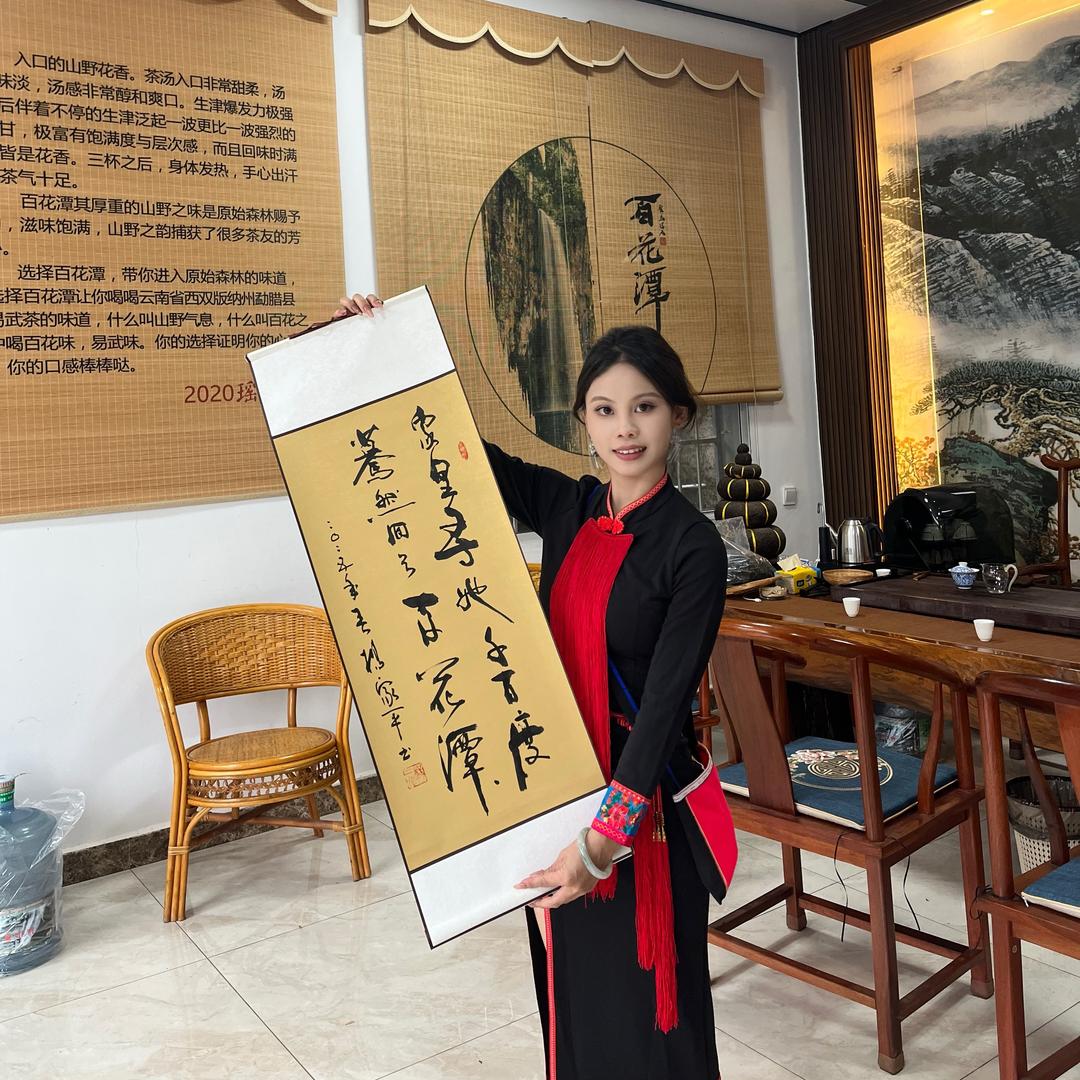 入口的山野花香。茶汤入口非常甜柔，汤
味淡，汤感非常醇和爽口。生津爆发力极强
后伴着不停的生津泛起一波更比一波强烈的
甘，极富有饱满度与层次感，而且回味时满
皆是花香。三杯之后，身体发热，手心出汗
茶气十足。
百花潭其厚重的山野之味是原始森林赐予
，滋味饱满，山野之韵捕获了很多茶友的芳
选择百花潭，带你进入原始森林的味道，
选择百花潭让你喝喝云南省西双版纳州勐腊县
易武茶的味道，什么叫山野气息，什么叫百花之
中喝百花味，易武味。你的选择证明你的
你的口感棒棒哒。
2020瑶
百花潭
皇寻她千百度
蓦然回首百花潭
二〇二五年